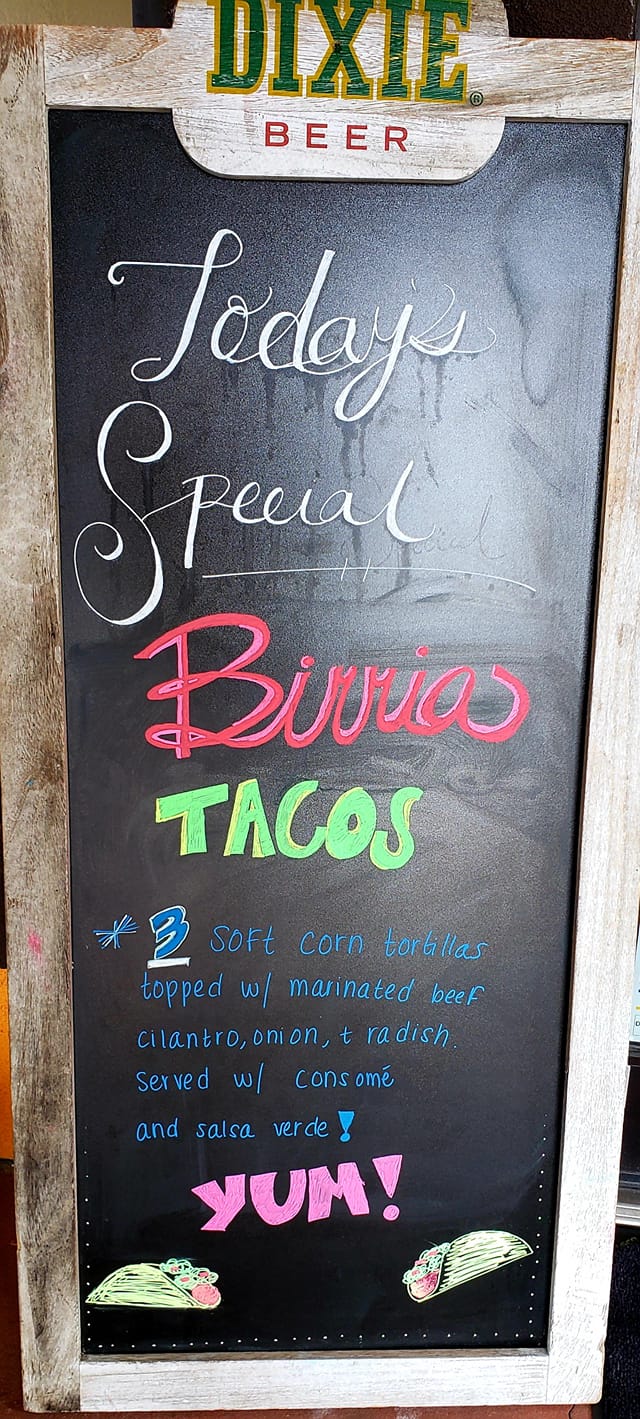 DIXIE®
BEER
Today's
Special
Birria
TACOS
* 3 soft corn tortillas
topped w/ marinated beef
cilantro, onion, + radish.
served w/ consomé
and salsa verde!
YUM!